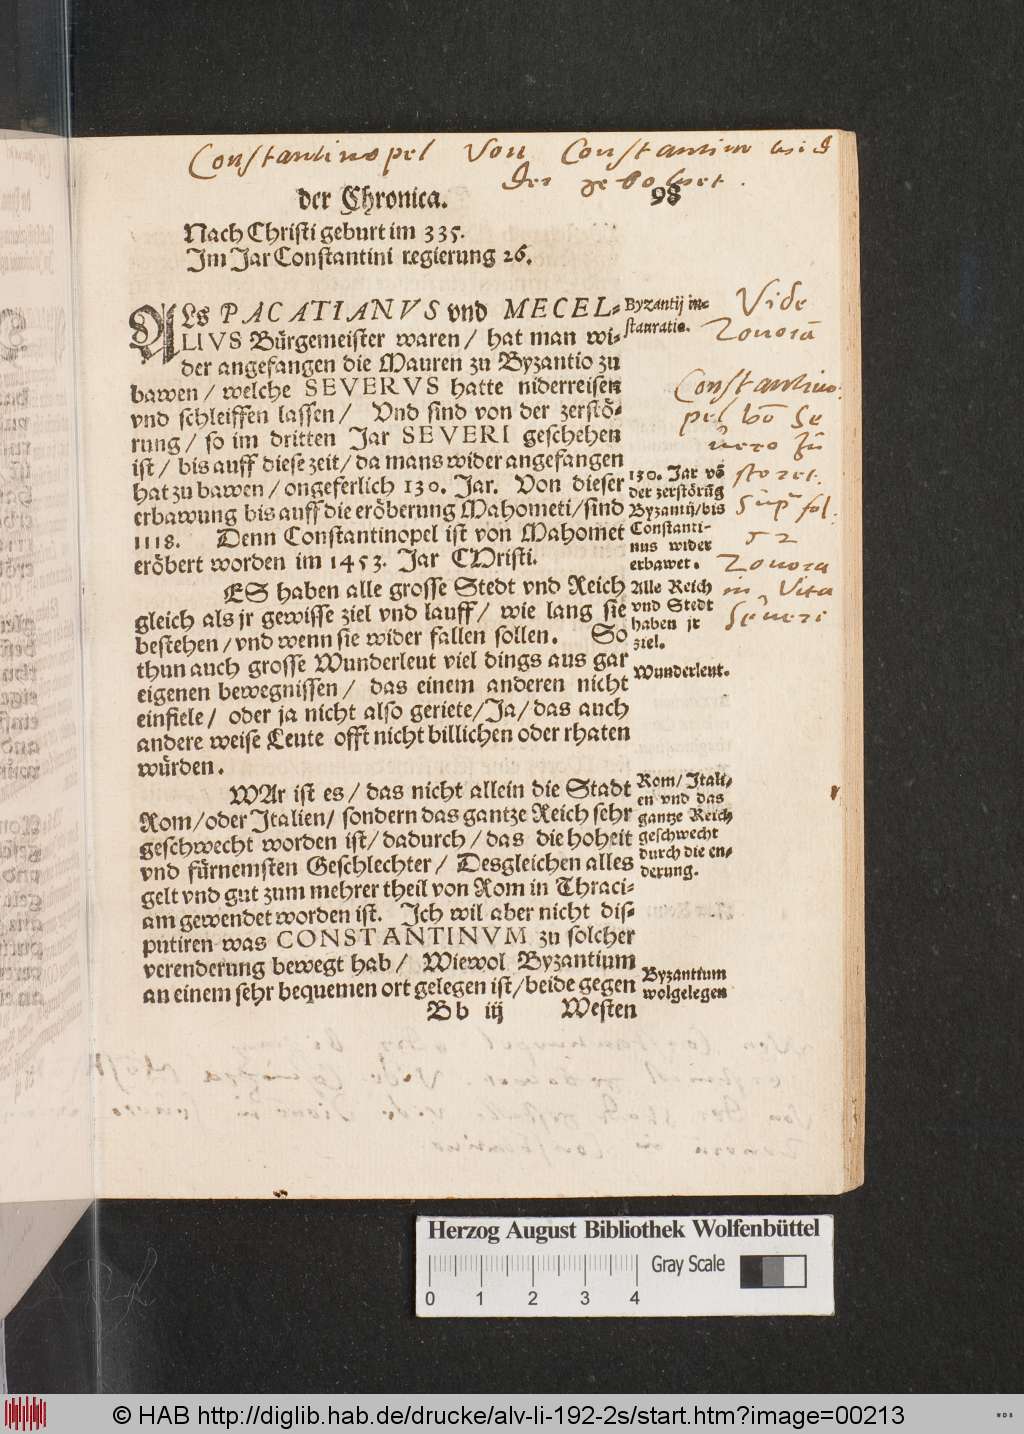 Constantinopel Von Constantino wid
der gebowet.
der Chronica. 98
Nach Christi geburt im 335.
Im Jar Constantini regierung 26.
ALs PACATIANVS vnd MECEL-
LIVS Bürgemeister waren/ hat man wi-
der angefangen die Mauren zu Byzantio zu
bawen/ welche SEVERVS hatte niderreisen
vnd schleiffen lassen/ Vnd sind von der zerstö-
rung/ so im dritten Jar SEVERI geschehen
ist/ bis auff diese zeit/ da mans wider angefangen
hat zu bawen/ ongeferlich 130. Jar. Von dieser
erbawung bis auff die eröberung Mahometi/ sind
1118. Denn Constantinopel ist von Mahomet
eröbert worden im 1453. Jar CHristi.
ES haben alle grosse Stedt vnd Reich
gleich als jr gewisse ziel vnd lauff/ wie lang sie
bestehen/ vnd wenn sie wider fallen sollen. So
thun auch grosse Wunderleut viel dings aus gar
eigenen bewegnissen/ das einem anderen nicht
einfiele/ oder ja nicht also geriete/ Ja/ das auch
andere weise Leute offt nicht billichen oder rhaten
würden.
WAr ist es/ das nicht allein die Stadt
Rom/ oder Italien/ sondern das gantze Reich sehr
geschwecht worden ist/ dadurch/ das die hoheit
vnd fürnemsten Geschlechter/ Desgleichen alles
gelt vnd gut zum mehrer theil von Rom in Thraci-
am gewendet worden ist. Ich wil aber nicht dis-
putiren was CONSTANTINVM zu solcher
verenderung bewegt hab/ Wiewol Byzantium
an einem sehr bequemen ort gelegen ist/ beide gegen
Bb iij Westen
Byzantij in-
stauratio.
130. Jar vō
der zerstörūg
Byzantij/ bis
Constanti-
nus wider
erbawet.
Alle Reich
vnd Stedt
haben jr
ziel.
Wunderleut.
Rom/ Itali-
en vnd das
gantze Reich
geschwecht
durch die en-
derung.
Byzantium
wolgelegen
Vide
Zonorā
Constantino
pel vō Se
vero zū
storet.
Sup fol.
52
Zonora
in Vita
Severi
Herzog August Bibliothek Wolfenbüttel
Gray Scale
0 1 2 3 4
© HAB http://diglib.hab.de/drucke/alv-li-192-2s/start.htm?image=00213